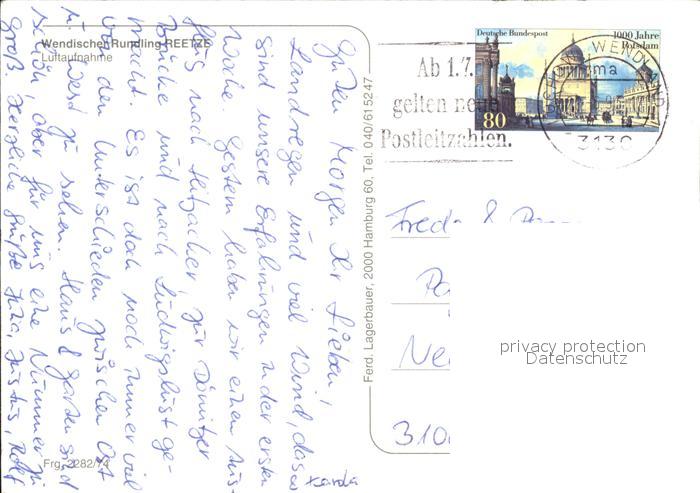 Wendischer Rundling REETZE
Luftaufnahme
Guten Morgen Ihr Lieben!
Landregen und viel Wind, das
sind unsere Erfahrungen in der ersten
Woche. Gestern haben wir einen Aus-
flug nach Hitzacker, zur Dömitzer
Brücke und nach Ludwigslust ge-
macht. Es ist doch noch immer viel
von den Unterschieden zwischen Ost
u. West zu sehen. Haus & Garten sind
schön, aber für uns eine Nummer zu
groß. Herzliche Grüße Jutta, Justus, Rolf
Frg. 2282/74
Ferd. Lagerbauer, 2000 Hamburg 60, Tel. 040/615247
Ab 1.7.
gelten neue
Postleitzahlen.
Deutsche Bundespost
1000 Jahre
Potsdam
80
WENDLAND
ma
3130
Freda &
Ne
310
privacy protection
Datenschutz